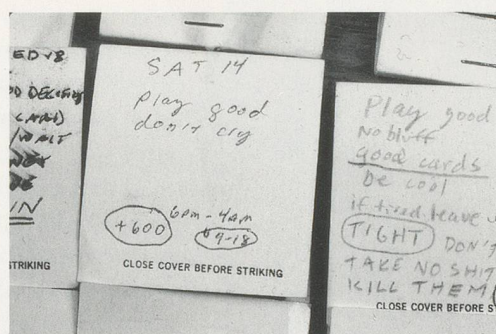 ED v8
CARD)
IN
STRIKING
SAT 14
Play good
don't cry
+600
6pm - 4am
9-18
CLOSE COVER BEFORE STRIKING
Play good
No bluff
good cards
be cool
if tired leave
TIGHT DON'T
TAKE NO SHIT
KILL THEM
CLOSE COVER BEFORE S